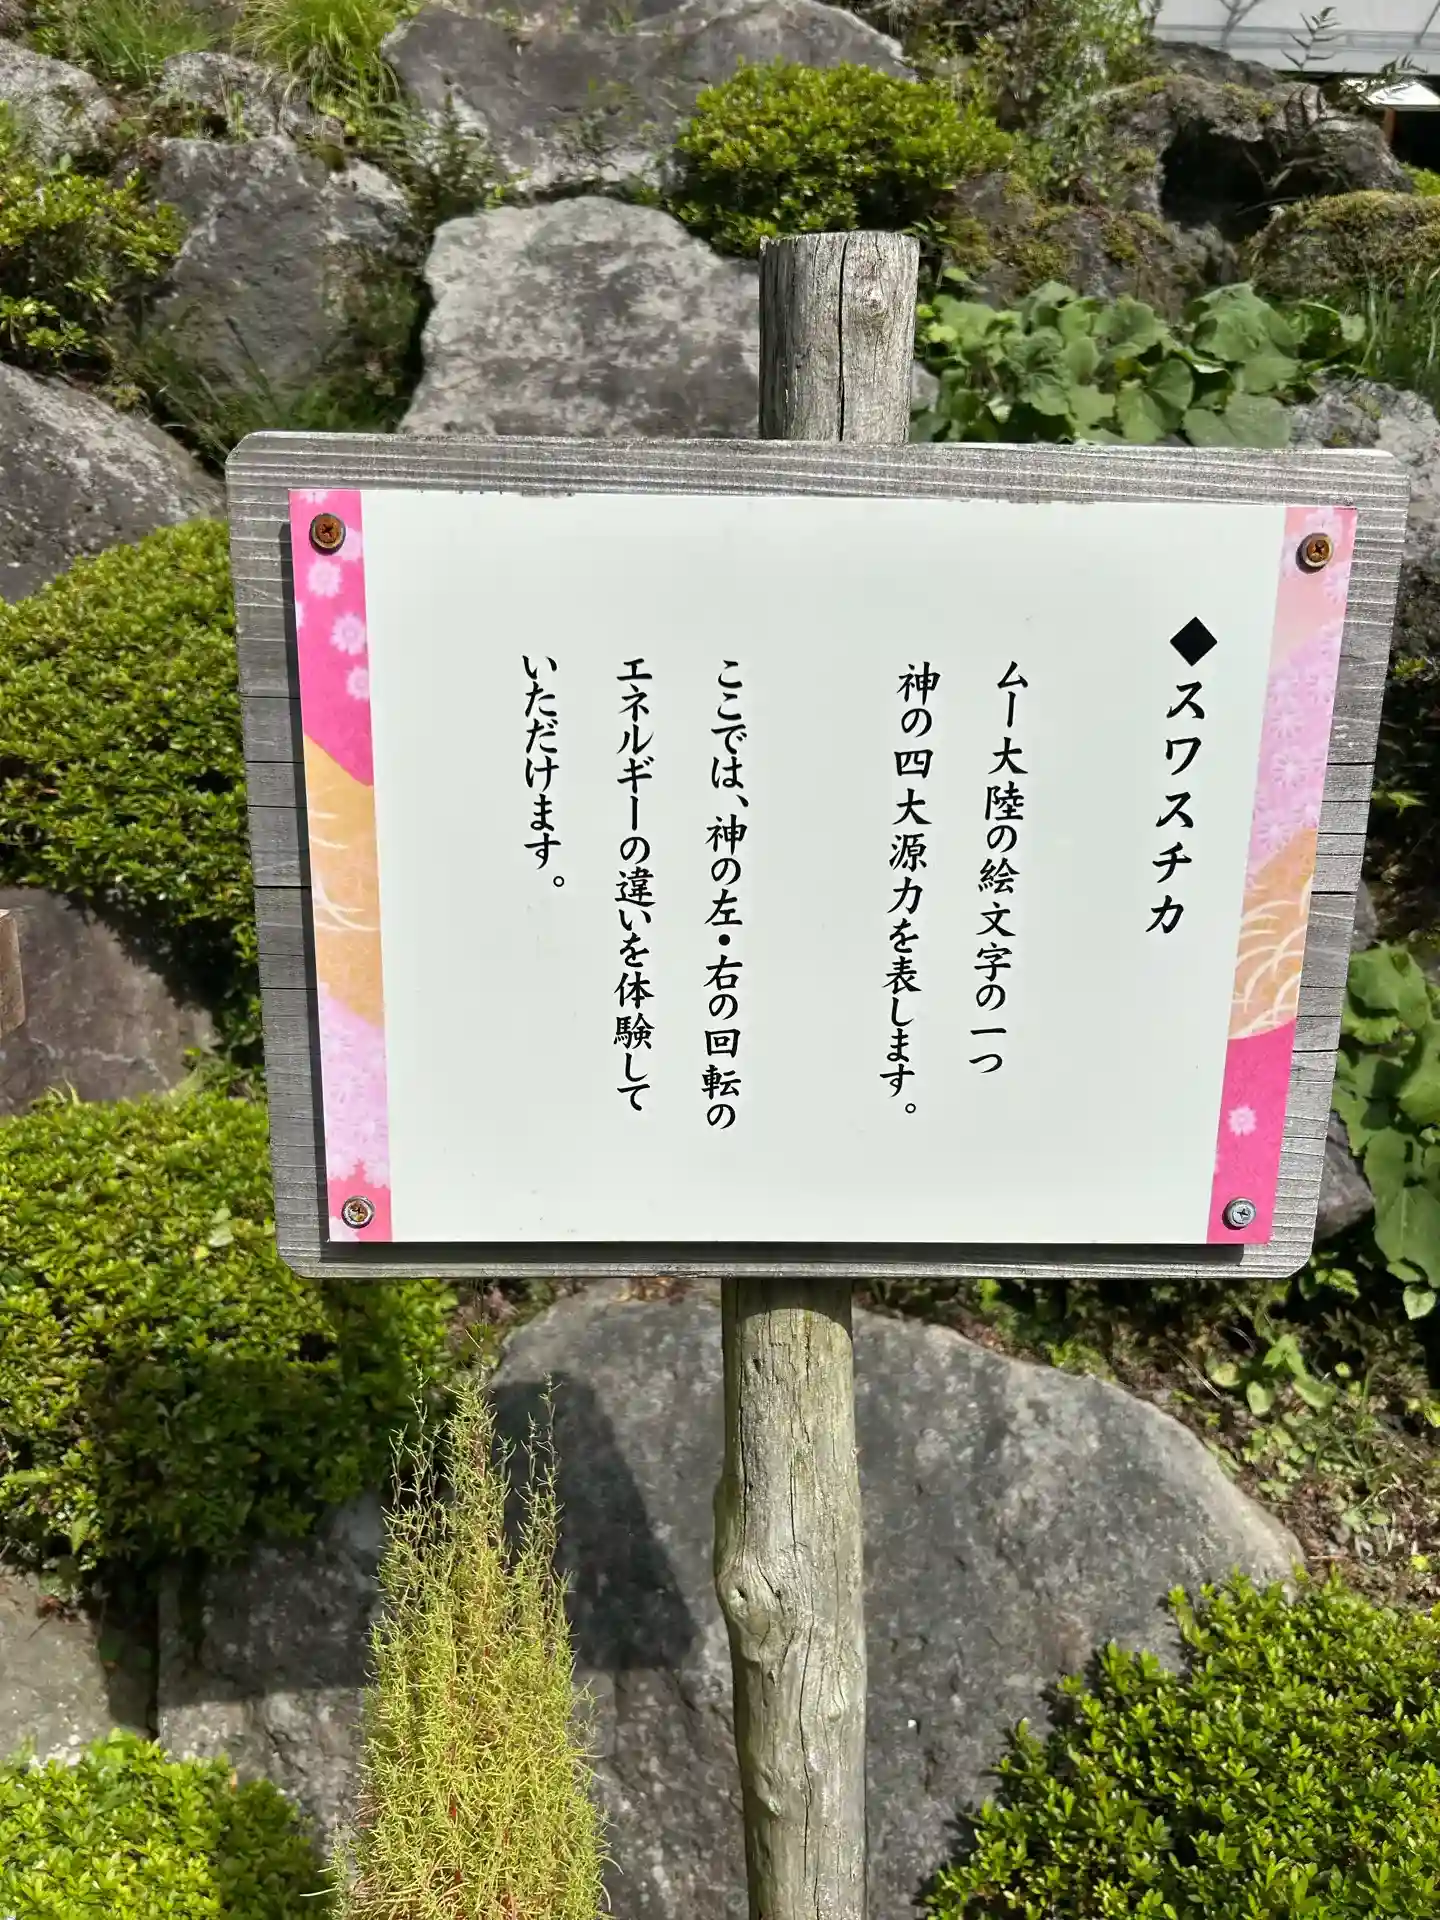 ◆スワスチカ
ムー大陸の絵文字の一つ
神の四大源力を表します。
ここでは、神の左・右の回転の
エネルギーの違いを体験して
いただけます。